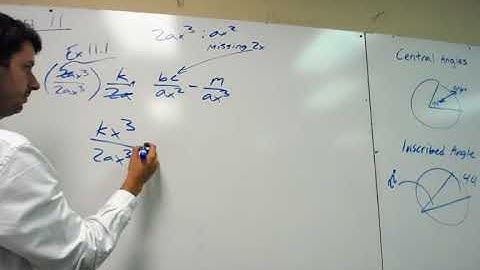 11
2ax³ : ax²
missing 2x
Ex 11.1
(2ax³/2ax³) k/2a bc/ax² - m/ax³
kx³/2ax³
Central Angles
Inscribed Angle